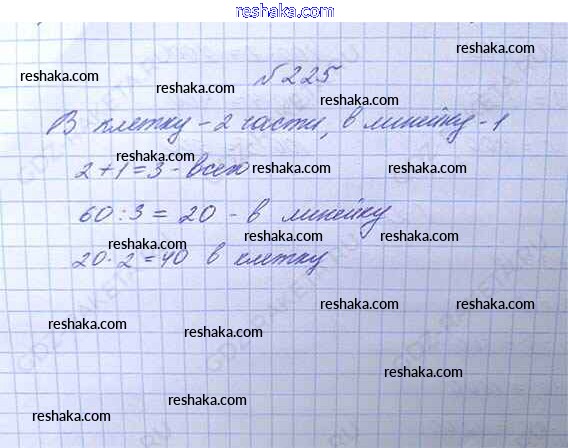 reshaka.com
№225
reshaka.com reshaka.com reshaka.com
В клетку - 2 части, в линейку - 1
reshaka.com
2 + 1 = 3 - всего
reshaka.com reshaka.com
60 : 3 = 20 - в линейку
reshaka.com reshaka.com reshaka.com
20 · 2 = 40 в клетку
reshaka.com reshaka.com
reshaka.com reshaka.com
reshaka.com
reshaka.com
reshaka.com